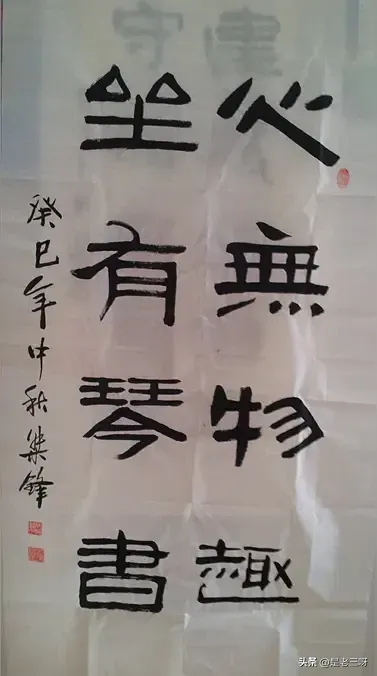 心無物趣
坐有琴書
癸巳年中秋 鋒
头条 @是老三呀